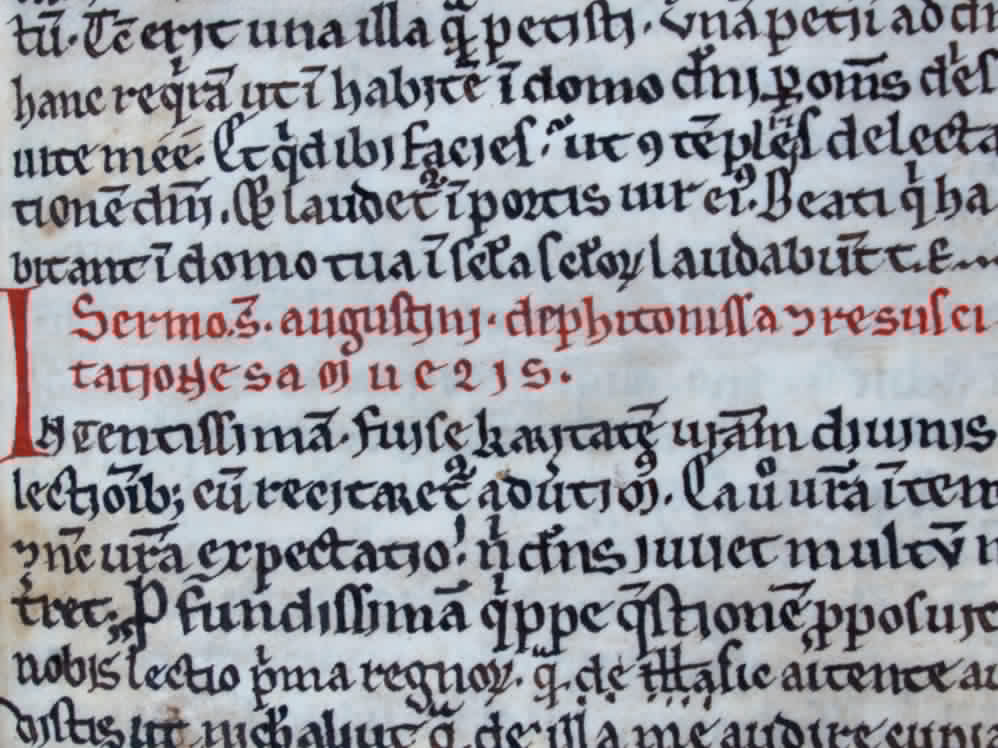 tū. Tc̄ erit una illa q̄ petisti. Vnā petii a dn̄
hanc reqͥrā ut ī habitē ī domo dn̄i ꝑ om̄s
uite meē. Et qͥd ibi facies. ut ꝯtēplēs delecta
tionē dn̄i. laudet̄ ī portis uir eiꝰ. Beati qͥ ha
bitant ī domo tua ī sc̄la sc̄loꝝ laudabūt t.E...
Sermo.S̄. augustini. de phitonissa ⁊ resusci
tatione samuelis.
Intentissimā. fuise karitatē ur̄am diuinis
lectiōib; cū recitaret̄ aduͥtimꝰ.
⁊n̄c ur̄a expectatio. n̄ dn̄s iuuet multū
tret. P fundissimā qͥppe q̄stionē pposuit
nobis lectio pͥma regnoꝝ. q̄. de sic aitente
ut de illa me audire